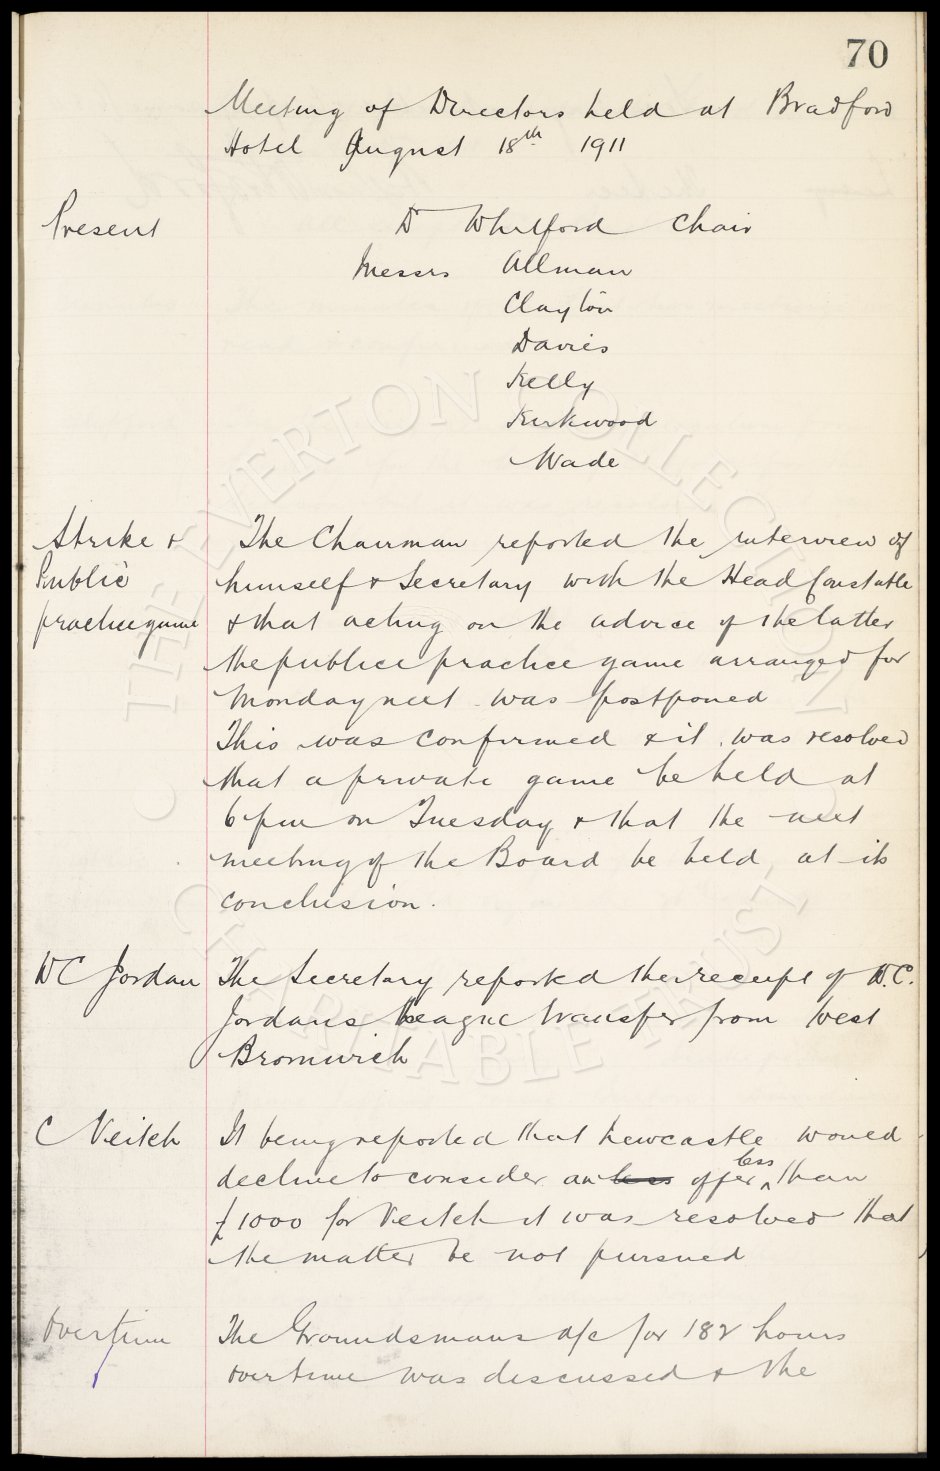 70
Meeting of Directors held at Bradford
Hotel August 18th 1911
Present
Dr Whitford Chair
Messrs Allman
Clayton
Davies
Kelly
Kirkwood
Wade
Strike &
Public
practice game
The Chairman reported the interview of
himself & Secretary with the Head Constable
& that acting on the advice of the latter
the public practice game arranged for
Monday next was postponed
This was confirmed & it was resolved
that a private game be held at
6 pm on Tuesday & that the next
meeting of the Board be held at its
conclusion.
D C Jordan
The Secretary reported the receipt of D.C.
Jordans League transfer from West
Bromwich
C Veitch
It being reported that Newcastle would
decline to consider an less offer less than
£1000 for Veitch it was resolved that
the matter be not pursued
Overtime
The Groundsmans a/c for 182 hours
overtime was discussed & the
© THE EVERTON COLLECTION
CHARITABLE TRUST